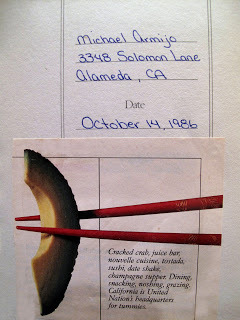 Michael Armijo
3348 Solomon Lane
Alameda, CA
Date
October 14, 1986
Cracked crab, juice bar,
nouvelle cuisine, tostada,
sushi, date shake,
champagne supper. Dining,
snacking, noshing, grazing.
California is United
Nation's headquarters
for tummies.